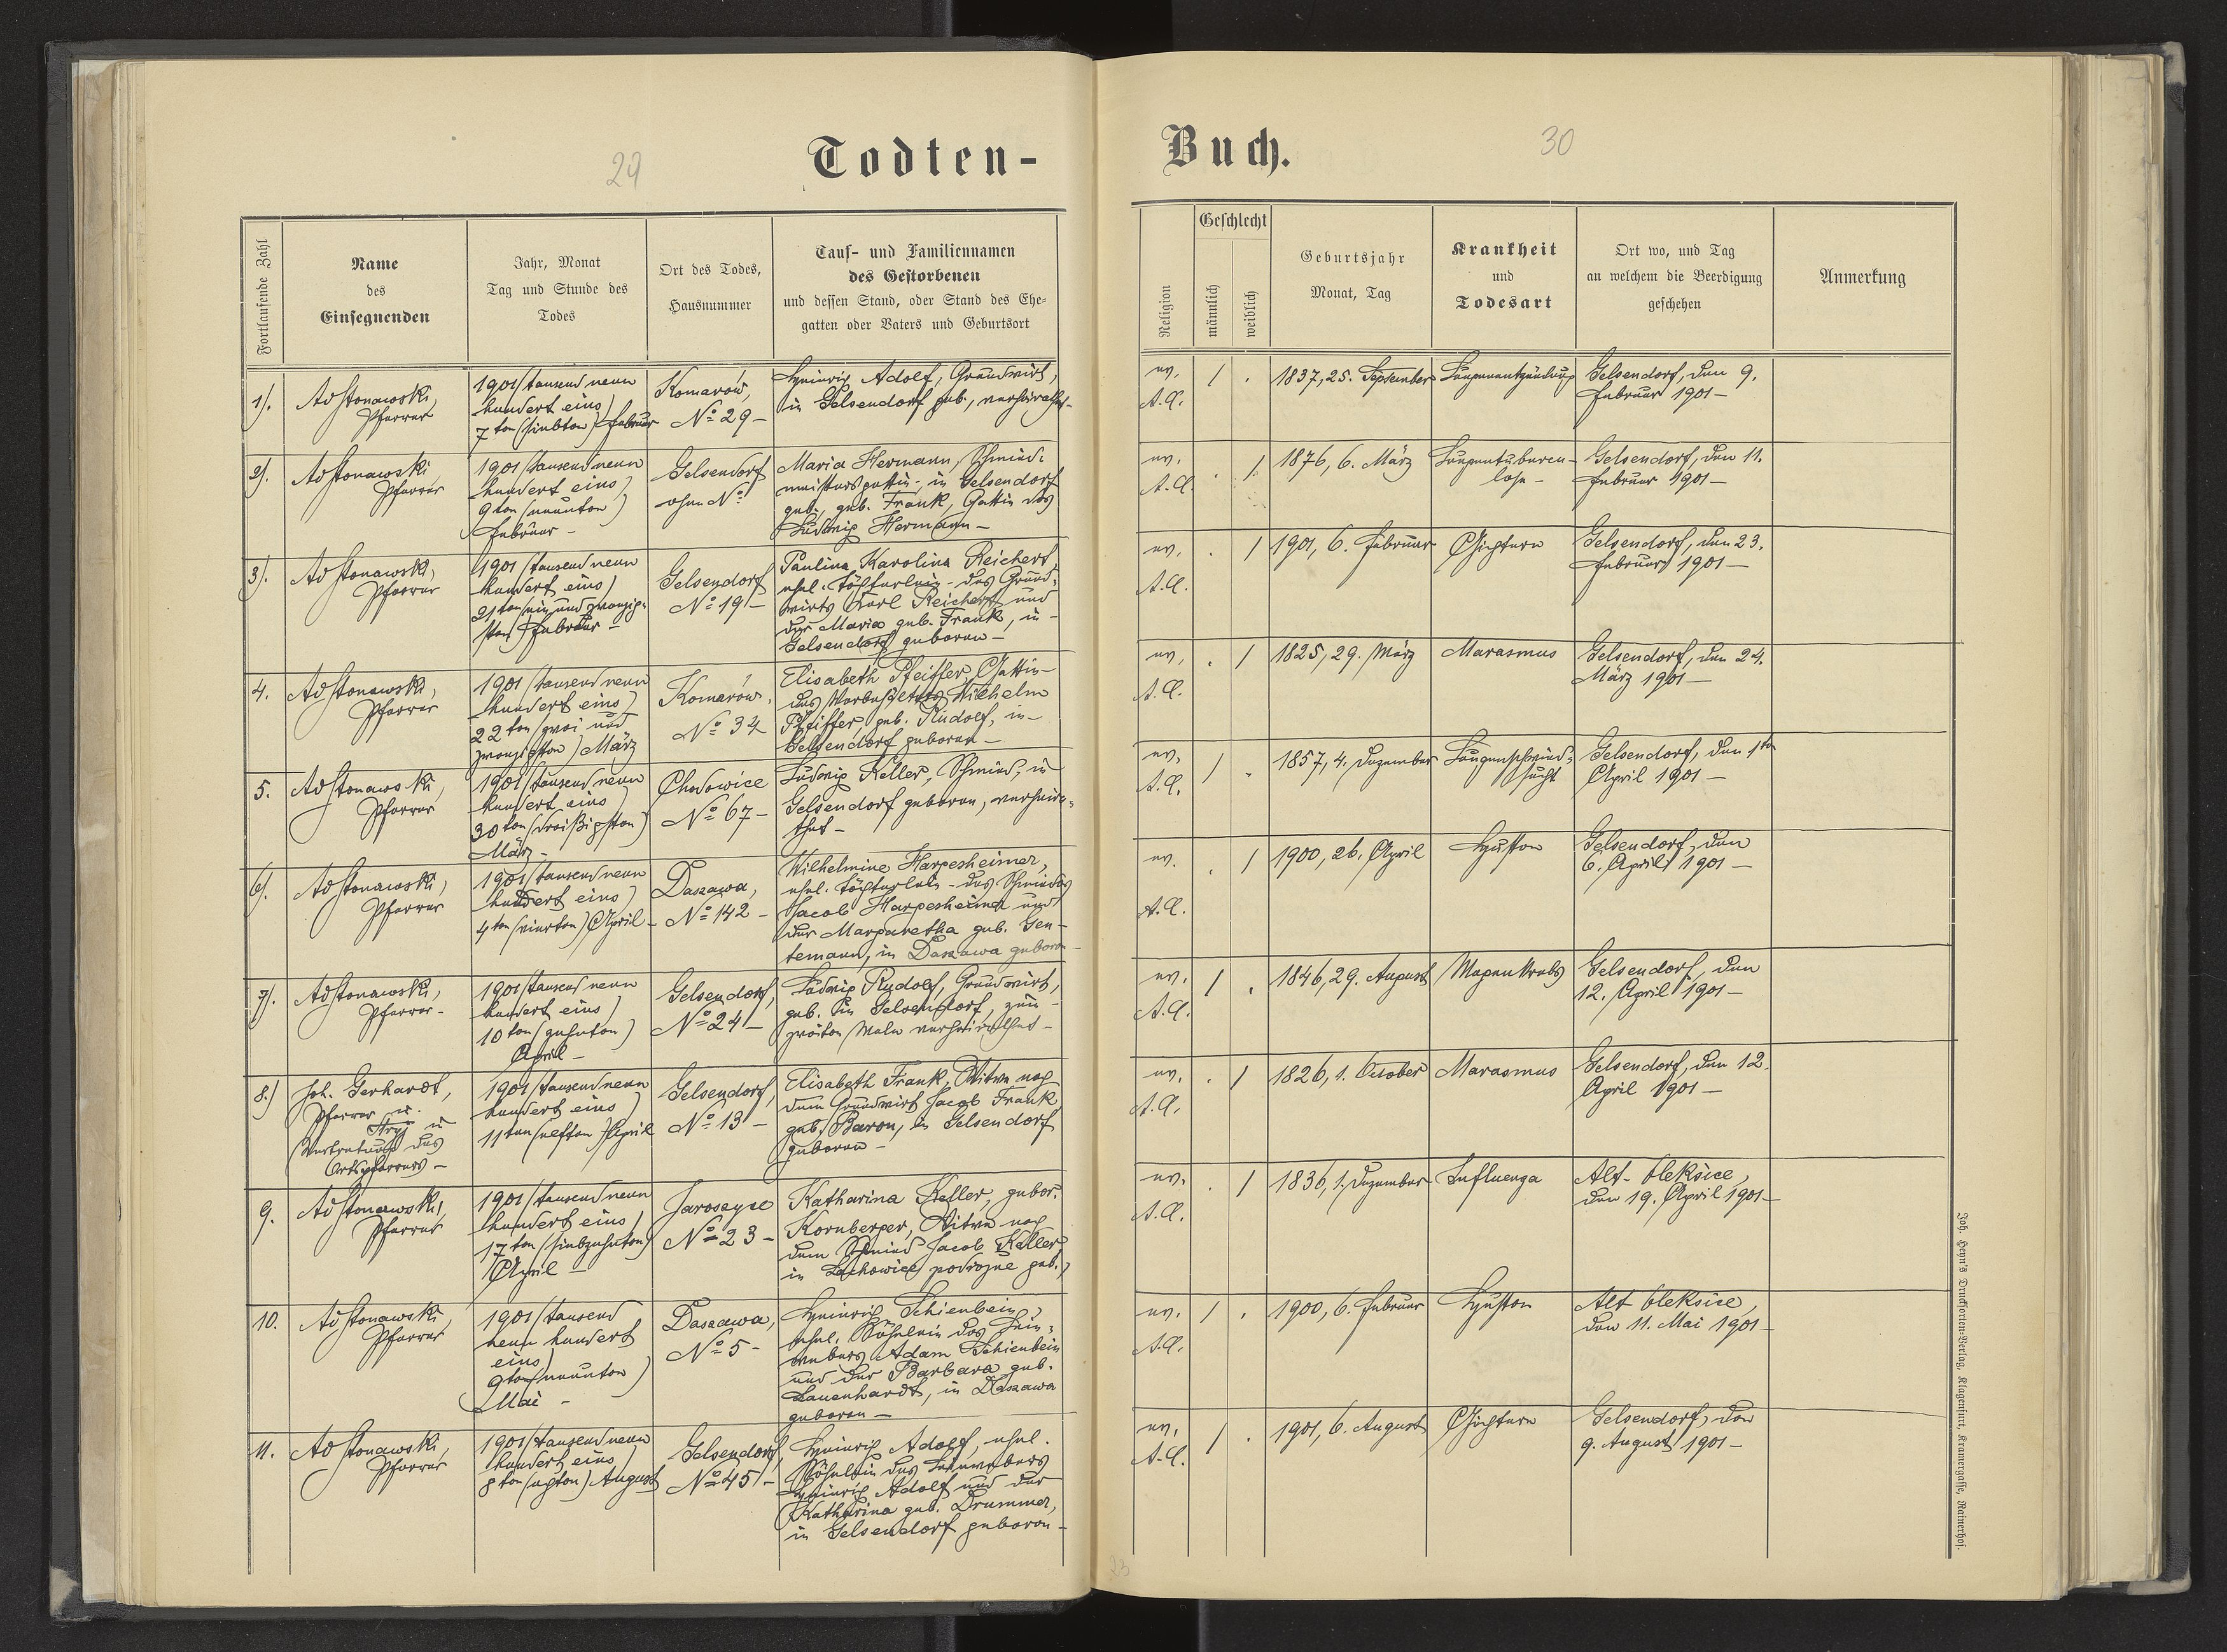 29
Todten-
Fortlaufende Zahl
Name
des
Einsegnenden
Jahr, Monat
Tag und Stunde des
Todes
Ort des Todes,
Hausnummer
Tauf- und Familiennamen
des Gestorbenen
und dessen Stand, oder Stand des Ehe-
gatten oder Vaters und Geburtsort
1).
Ad Stonawski,
Pfarrer
1901 (tausend neun
hundert eins)
7ten (siebten) Februar
Komarów,
No 29 -
Heinrich Adolf, Grundwirt,
in Gelsendorf geb., verheirathet-
2).
Ad Stonawski
Pfarrer
1901 (tausend neun
hundert eins)
9ten (neunten)
Februar -
Gelsendorf
ohne No
Maria Hermann, Schmied-
meistersgattin - in Gelsendorf
geb., geb. Frank, Gattin des
Ludwig Hermann -
3).
Ad Stonawski,
Pfarrer
1901 (tausend neun
hundert eins)
21ten (ein und zwanzig-
sten) Februar -
Gelsendorf
No 19 -
Paulina Karolina Reichert
ehel. Töchterlein - des Grund-
wirts Karl Reichert und
der Maria geb. Frank, in -
Gelsendorf geboren -
4.
Ad Stonawski,
Pfarrer
1901 (tausend neun
hundert eins)
22ten (zwei und
zwanzigsten) März
Komarów
No 34
Elisabeth Pfeiffer, Gattin -
des Wilhelm
Pfeiffer, geb. Rudolf, in -
Gelsendorf geboren -
5.
Ad Stonawski,
Pfarrer
1901 (tausend neun
hundert eins)
30ten (dreißigsten)
März -
Chodowice
No 67 -
Ludwig Keller, Schmied, in
Gelsendorf geboren, verheira-
thet -
6).
Ad Stonawski,
Pfarrer
1901 (tausend neun
hundert eins)
4ten (vierten) April -
Daszawa,
No 142 -
Wilhelmine Harpesheimer,
ehel. Töchterlein - des Schmiedes
Jacob Harpesheimer und
der Margaretha geb. Gen-
temann, in Daszawa geboren -
7).
Ad Stonawski,
Pfarrer -
1901 (tausend neun
hundert eins)
10ten (zehnten)
April -
Gelsendorf,
No 24 -
Ludwig Rudolf, Grundwirt,
geb. in Gelsendorf, zum -
zweiten Male verheirathet -
8.)
Joh. Gerhardt,
Pfarrer in
Stryj in
Vertretung des
Ortspfarrers -
1901 (tausend neun
hundert eins)
11ten (elften) April
Gelsendorf,
No 13 -
Elisabeth Frank, Witwe nach
dem Grundwirt Jacob Frank
geb. Baron, in Gelsendorf
geboren -
9.
Ad Stonawski,
Pfarrer
1901 (tausend neun
hundert eins)
17ten (siebzehnten)
April -
Jaroszyce
No 23 -
Katharina Keller, gebor.
Kornberger, Witwe nach
dem Schmied Jacob Keller,
in Lachowice podrożne geb.,
10.
Ad Stonawski,
Pfarrer
1901 (tausend
neun hundert
eins)
9ten (neunten)
Mai -
Daszawa,
No 5 -
Heinrich Schienbein,
ehel. Söhnlein des Lein-
webers Adam Schienbein
und der Barbara geb.
Lauenhardt, in Daszawa
geboren -
11.
Ad Stonawski,
Pfarrer
1901 (tausend neun
hundert eins)
8ten (achten) August
Gelsendorf,
No 45 -
Heinrich Adolf, ehel.
Söhnlein des Leinwebers
Heinrich Adolf und der
Katharina geb. Drummer,
in Gelsendorf geboren -
Buch.
30
Religion
Geschlecht
männlich
weiblich
Geburtsjahr
Monat, Tag
Krankheit
und
Todesart
Ort wo, und Tag
an welchem die Beerdigung
geschehen
Anmerkung
ev.
A.C.
1 .
1837, 25. September
Lungenentzündung
Gelsendorf, den 9.
Februar 1901 -
ev.
A.C.
. 1
1876, 6. März
Lungentubercu-
lose -
Gelsendorf, den 11.
Februar 1901 -
ev.
A.C.
. 1
1901, 6. Februar
Gichtern
Gelsendorf, den 23.
Februar 1901 -
ev.
A.C.
. 1
1825, 29. März
Marasmus
Gelsendorf, den 24.
März 1901 -
ev.
A.C.
1 .
1857, 4. Dezember
Lungenschwind-
sucht
Gelsendorf, den 1ten
April 1901 -
ev.
A.C.
. 1
1900, 26. April
Husten
Gelsendorf, den
6. April 1901 -
ev.
A.C.
1 .
1846, 29. August
Magenkrebs
Gelsendorf, den
12. April 1901 -
ev.
A.C.
. 1
1826, 1. October
Marasmus
Gelsendorf, den 12.
April 1901 -
ev.
A.C.
. 1
1836, 1. Dezember
Influenza
Alt-Oleksice,
den 19. April 1901 -
ev.
A.C.
1 .
1900, 6. Februar
Husten
Alt Oleksice,
den 11. Mai 1901 -
ev.
A.C.
1 .
1901, 6. August
Gichtern
Gelsendorf, den
9. August 1901 -
Joh. Heyn's Drucksorten-Verlag, Klagenfurt, Kramergasse, Rainerhof.
23